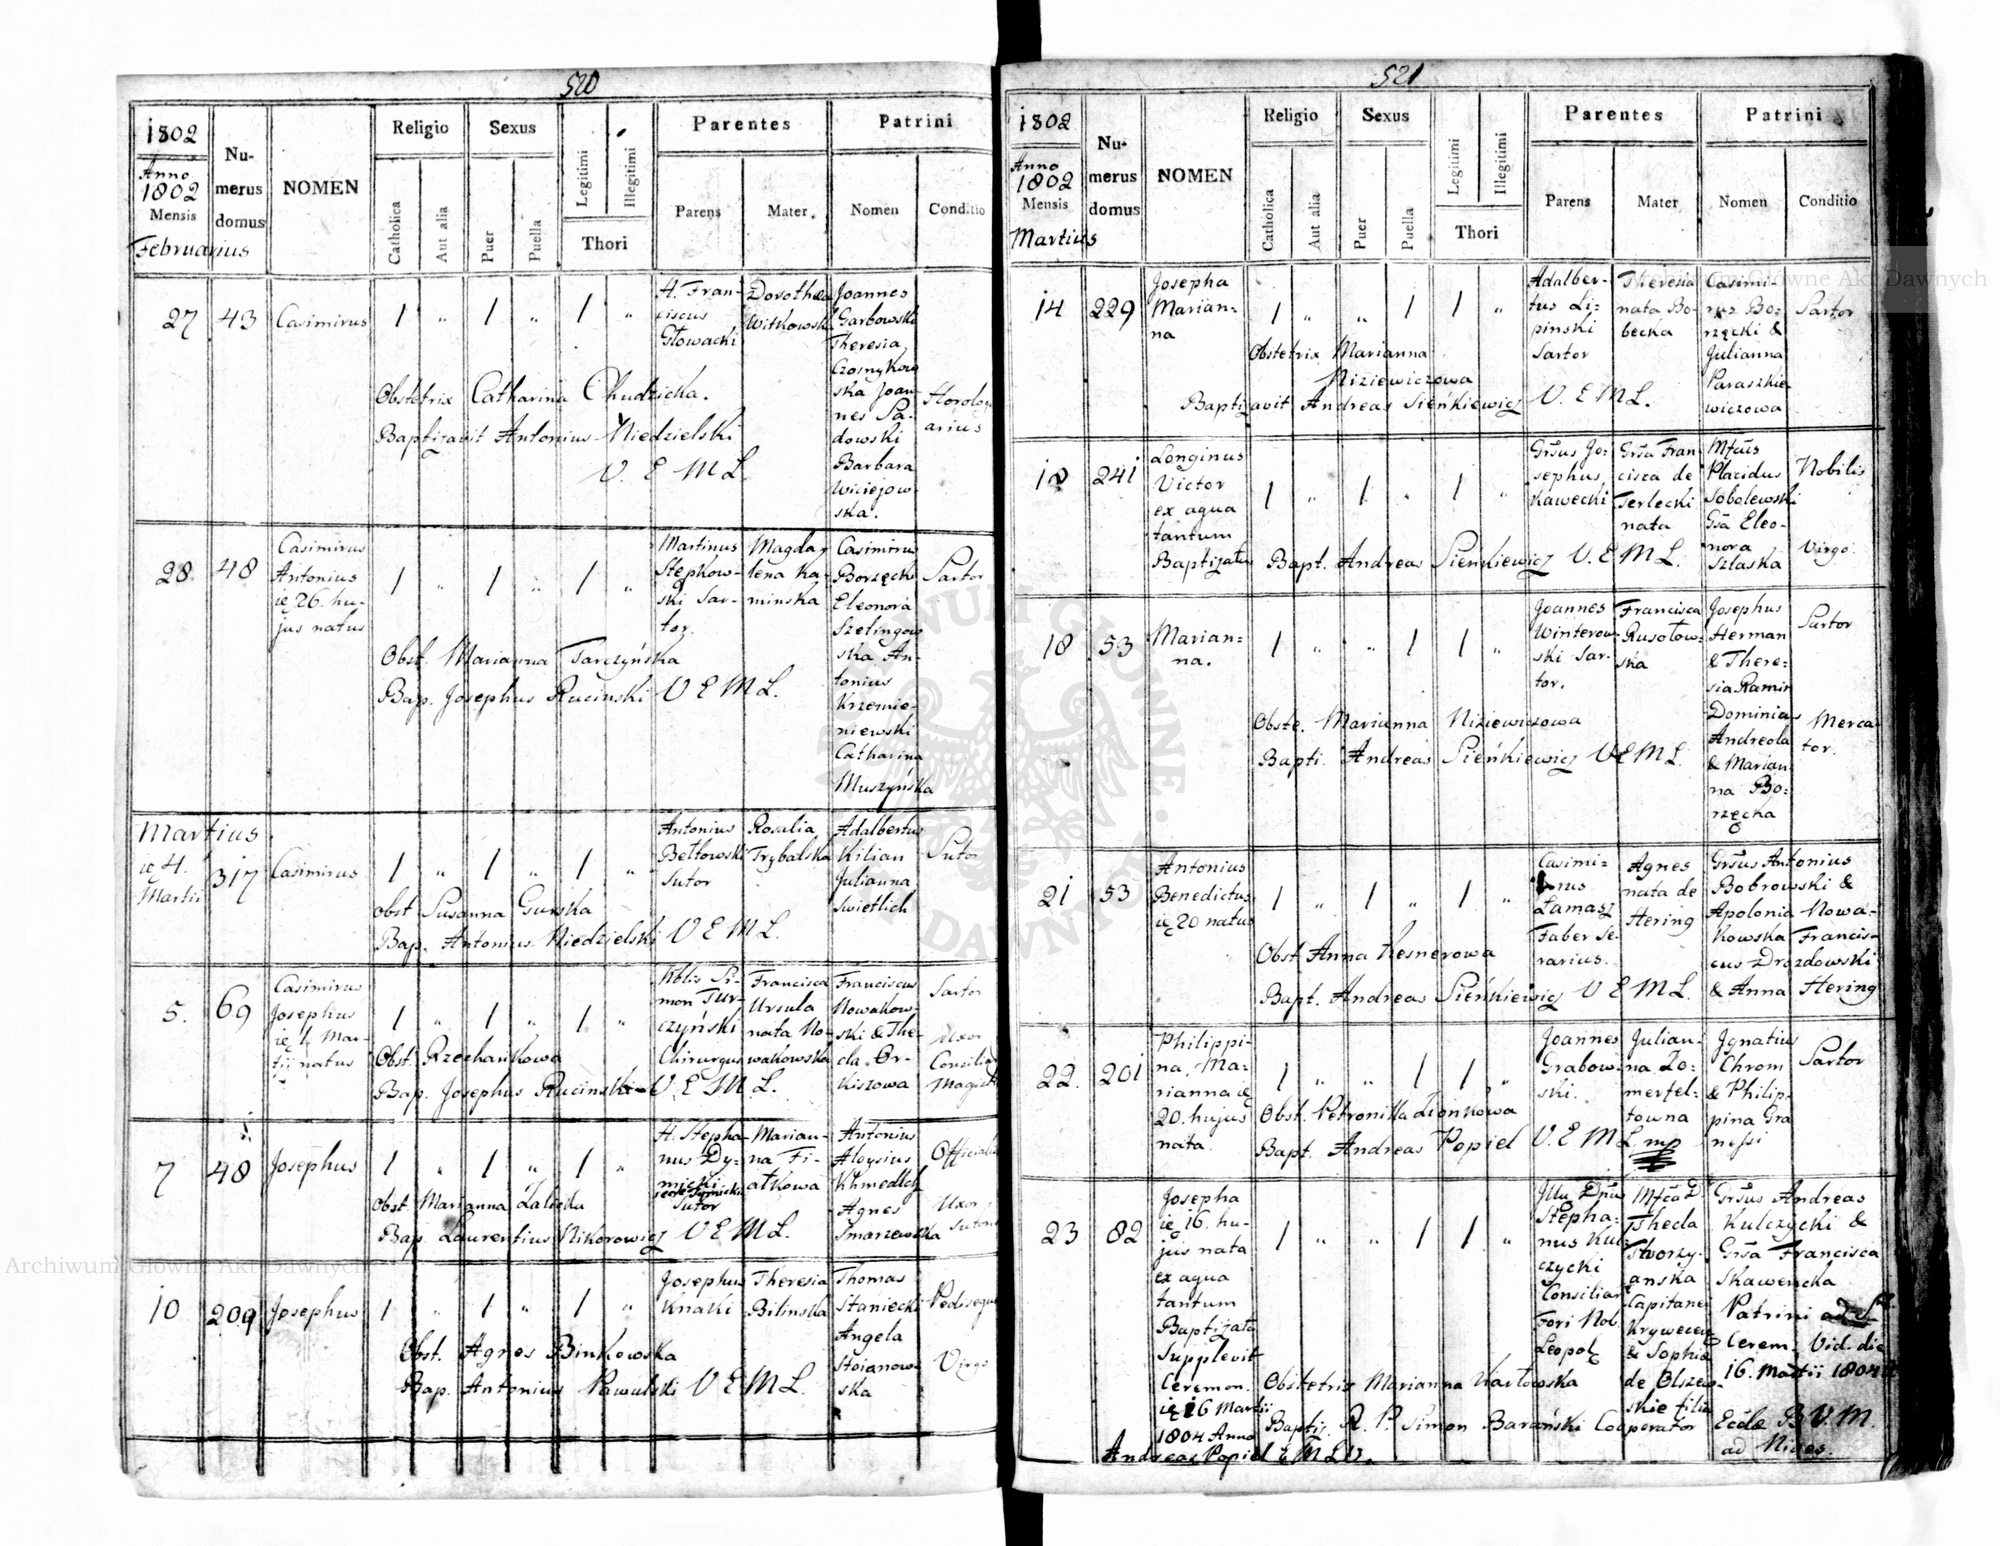 520
1802
Anno
1802
Mensis
Februarius
Numerus domus
NOMEN
Religio
Catholica
Aut alia
Sexus
Puer
Puella
Legitimi
Illegitimi
Thori
Parentes
Parens
Mater
Patrini
Nomen
Conditio
27 43 Casimirus 1 " 1 " 1 "
H. Fran-
ciscus
Głowacki
Dorothea
Witkowska
Joannes
Garbowski
Theresia
Czosnykow
ska Joan-
nes Sa-
dowski
Barbara
Wiciejow-
ska.
Horolog
arius
Obstetrix Catharina Chudzicka.
Baptizavit Antonius Niedzielski
V. E M L.
28. 48
Casimirus
Antonius
ię 26. hu-
jus natus
1 " 1 " 1 "
Martinus
Stepkow-
ski Sar-
tor.
Magda-
lena Ka-
minska
Casimirus
Borzęcki
Eleonora
Szelingow
ska An-
tonius
Krzemie-
niewski
Catharina
Muszyńska
Sartor
Obst. Marianna Tarczyńska
Bap. Josephus Rucinski V E M L.
Martius
ię 4.
Martii
317 Casimirus 1 " 1 " 1 "
Antonius
Bełtowski
Sutor
Rosalia
Trybalska
Adalbertus
Kilian
Julianna
Swietlich
Sutor
obst Susanna Gurska
Bap. Antonius Niedzielski V E M L.
5. 69
Casimirus
Josephus
ię 4 Mar-
tii natus
1 " 1 " 1 "
Nblis Si-
mon Tur-
czyński
Chirurgus
Francisca
Ursula
nata No-
wakowska
Franciscus
Nowakow-
ski & The-
cla Or-
kiszowa
Sartor
Uxor
Consilia
Magist
Obst. Rzechankowa
Bap. Josephus Rucinski V. E M L.
7 48 Josephus 1 " 1 " 1 "
H. Stepha-
nus Dy-
micki
Sutor
Marian-
na Fi-
ałkowa
Antonius
Aloysius
Khmedlch
Agnes
Smarzewska
Officialis
Uxor
Sutoris
Obst. Marianna Zaleska
Bap. Laurentius Nikorowicz V E M L.
10 209 Josephus 1 " 1 " 1 "
Josephus
Knaki
Theresia
Bilinska
Thomas
Staniecki
Angela
Stoianow-
ska
Pedissequus
Virgo
Obst. Agnes Binkowska
Bap. Antonius Pawulski V E M L.
521
1802
Anno
1802
Mensis
Martius
Numerus domus
NOMEN
Religio
Catholica
Aut alia
Sexus
Puer
Puella
Legitimi
Illegitimi
Thori
Parentes
Parens
Mater
Patrini
Nomen
Conditio
14 229
Josepha
Marian-
na
1 " " 1 1 "
Adalber-
tus Li-
pinski
Sartor
Theresia
nata Bo-
becka
Casimi-
rus Bo-
rzęcki &
Julianna
Paraszkie
wiczowa
Sartor
Obstetrix Marianna
Niziewiczowa
Baptizavit Andreas Sieńkiewicz V. E M L.
18 241
Longinus
Victor
ex aqua
tantum
Baptizatus
1 " 1 " 1 "
Grsus Jo-
sephus
Kawecki
Grsa Fran
cisca de
Terlecki
nata
Mfcus
Placidus
Sobolewski
Gsa Eleo-
nora
Szlaska
Nobilis
Virgo.
Bapt. Andreas Sieńkiewicz V. E M L.
18 53
Marian-
na.
1 " " 1 1 "
Joannes
Winterow-
ski Sar-
tor.
Francisca
Rusołow-
ska
Josephus
Herman
& There-
sia Ramin
Dominicus
Andreola
& Marian
na Bo-
rzęcka
Sartor
Merca-
tor.
Obste. Marianna Niziewiczowa
Bapti. Andreas Sieńkiewicz V E M L.
21 53
Antonius
Benedictus
ię 20 natus
1 " 1 " 1 "
Casimi-
rus
Łamasz
Faber Se-
rarius.
Agnes
nata de
Hering
Grsus Antonius
Bobrowski &
Apolonia Nowa-
kowska Francis-
cus Drozdowski
& Anna Hering
Obst Anna Kesnerowa
Bapt. Andreas Sieńkiewicz V E M L.
22. 201
Philippi-
na, Ma-
rianna ię
20. hujus
nata.
1 " " 1 1 "
Joannes
Grabow-
ski.
Julian-
na Zo-
mertel-
towna
Ignatius
Chrom
& Philip-
pina Gra
nefsi
Sartor
Obst. Petronilla Zionkowa
Bapt. Andreas Popiel V. E M L mp
23 82
Josepha
ię 16. hu-
jus nata
ex aqua
tantum
Baptizata
Supplevit
Ceremon.
ię 16 Martii
1804 Anno
Andreas Popiel E M L V.
1 " " 1 1 "
Illu Dnus
Stepha-
nus Kul-
czycki
Consiliar
Fori Nob.
Leopol
Mfca D
Thecla
Stworzy-
anska
Capitane
Krywecen
& Sophia
de Olszew-
skie filia
Grsus Andreas
Kulczycki &
Grsa Francisca
Skawencka
Patrini
Cerem. Vid. die
16. Martii 1804
Obstetrix Marianna Karłowska
Baptiz. R. P. Simon Barański Cooperator Eccle B V. M.
ad Nives.
Archiwum Główne Akt Dawnych
Archiwum Główne Akt Dawnych
ARCHIWUM GŁÓWNE AKT DAWNYCH